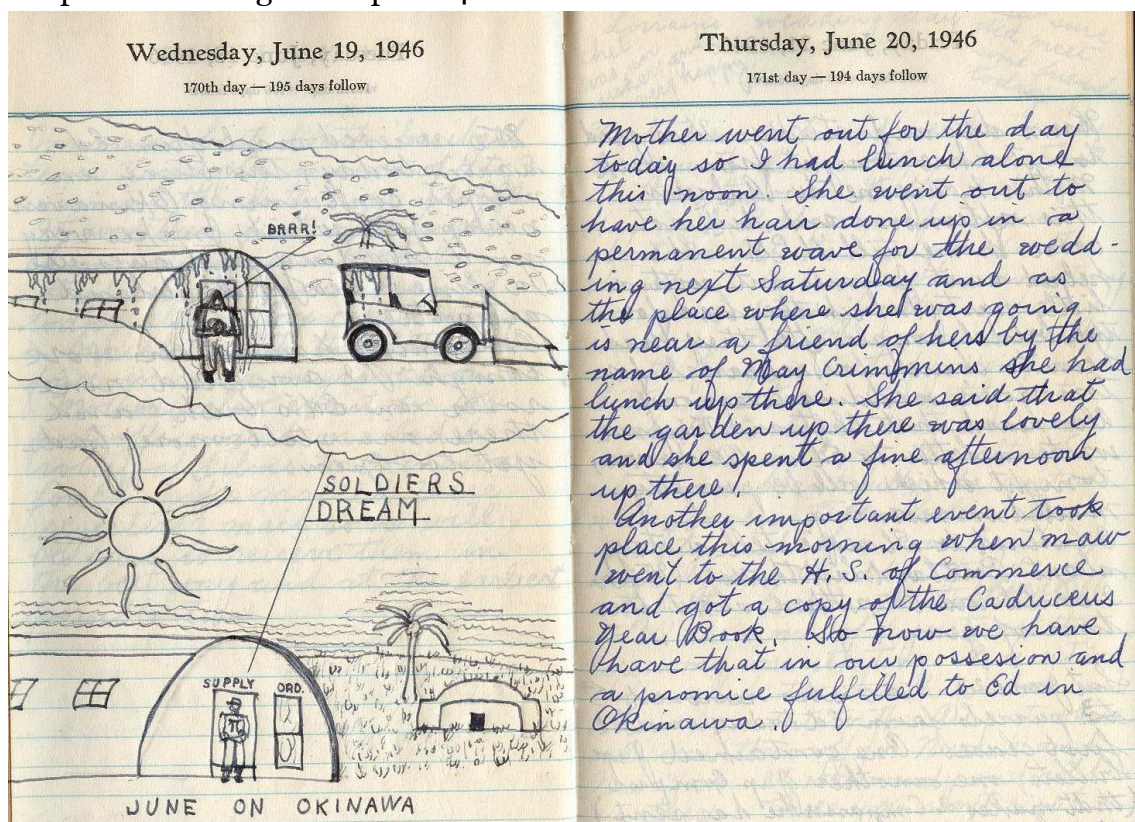 Wednesday, June 19, 1946
170th day — 195 days follow
BRRR!
SOLDIERS
DREAM
SUPPLY
ORD.
JUNE ON OKINAWA
Thursday, June 20, 1946
171st day — 194 days follow
Mother went out for the day
today so I had lunch alone
this noon. She went out to
have her hair done up in a
permanent wave for the wedd-
ing next Saturday and as
the place where she was going
is near a friend of hers by the
name of May Crimmins she had
lunch up there. She said that
the garden up there was lovely
and she spent a fine afternoon
up there.
Another important event took
place this morning when maw
went to the H. S. of Commerce
and got a copy of the Caduceus
Year Book. So now we have
have that in our possesion and
a promice fulfilled to Ed in
Okinawa.